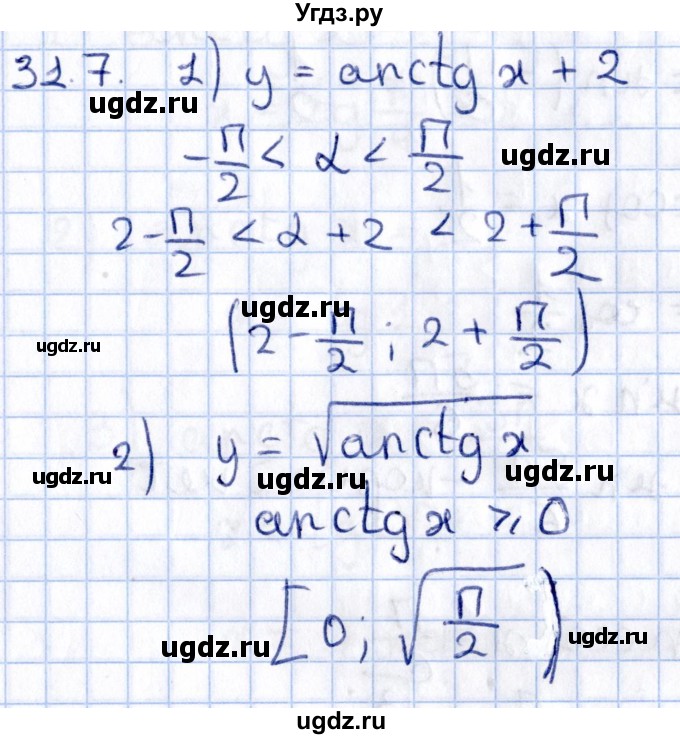 Угдз.ру
31.7. 1) y = arctg x + 2
ugdz.ru
-π/2 < α < π/2
ugdz.ru
2 - π/2 < α + 2 < 2 + π/2
ugdz.ru
ugdz.ru
(2 - π/2 ; 2 + π/2)
2) y = √(arctg x)
ugdz.ru
ugdz.ru
ugdz.ru
arctg x ⩾ 0
[0; √(π/2))
ugdz.ru
ugdz.ru
ugdz.ru